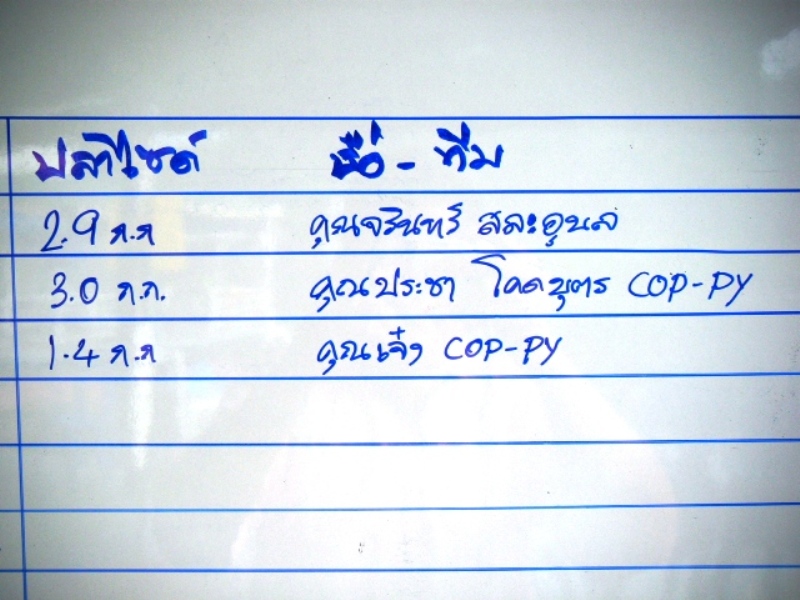 ปลาไซด์ ชื่อ - ทีม
2.9 ก.ก คุณจรินทร์ สละอูบล
3.0 ก.ก. คุณประชา โคตบุตร COP-PY
1.4 ก.ก คุณเจ๋ง COP-PY